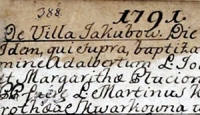 388. 1791.
De Villa Jakubow. Die
Idem, qui supra, baptiza
mine Adalbertum L Jo
et Margaritha
Martinus K
rothea Skwarkowna